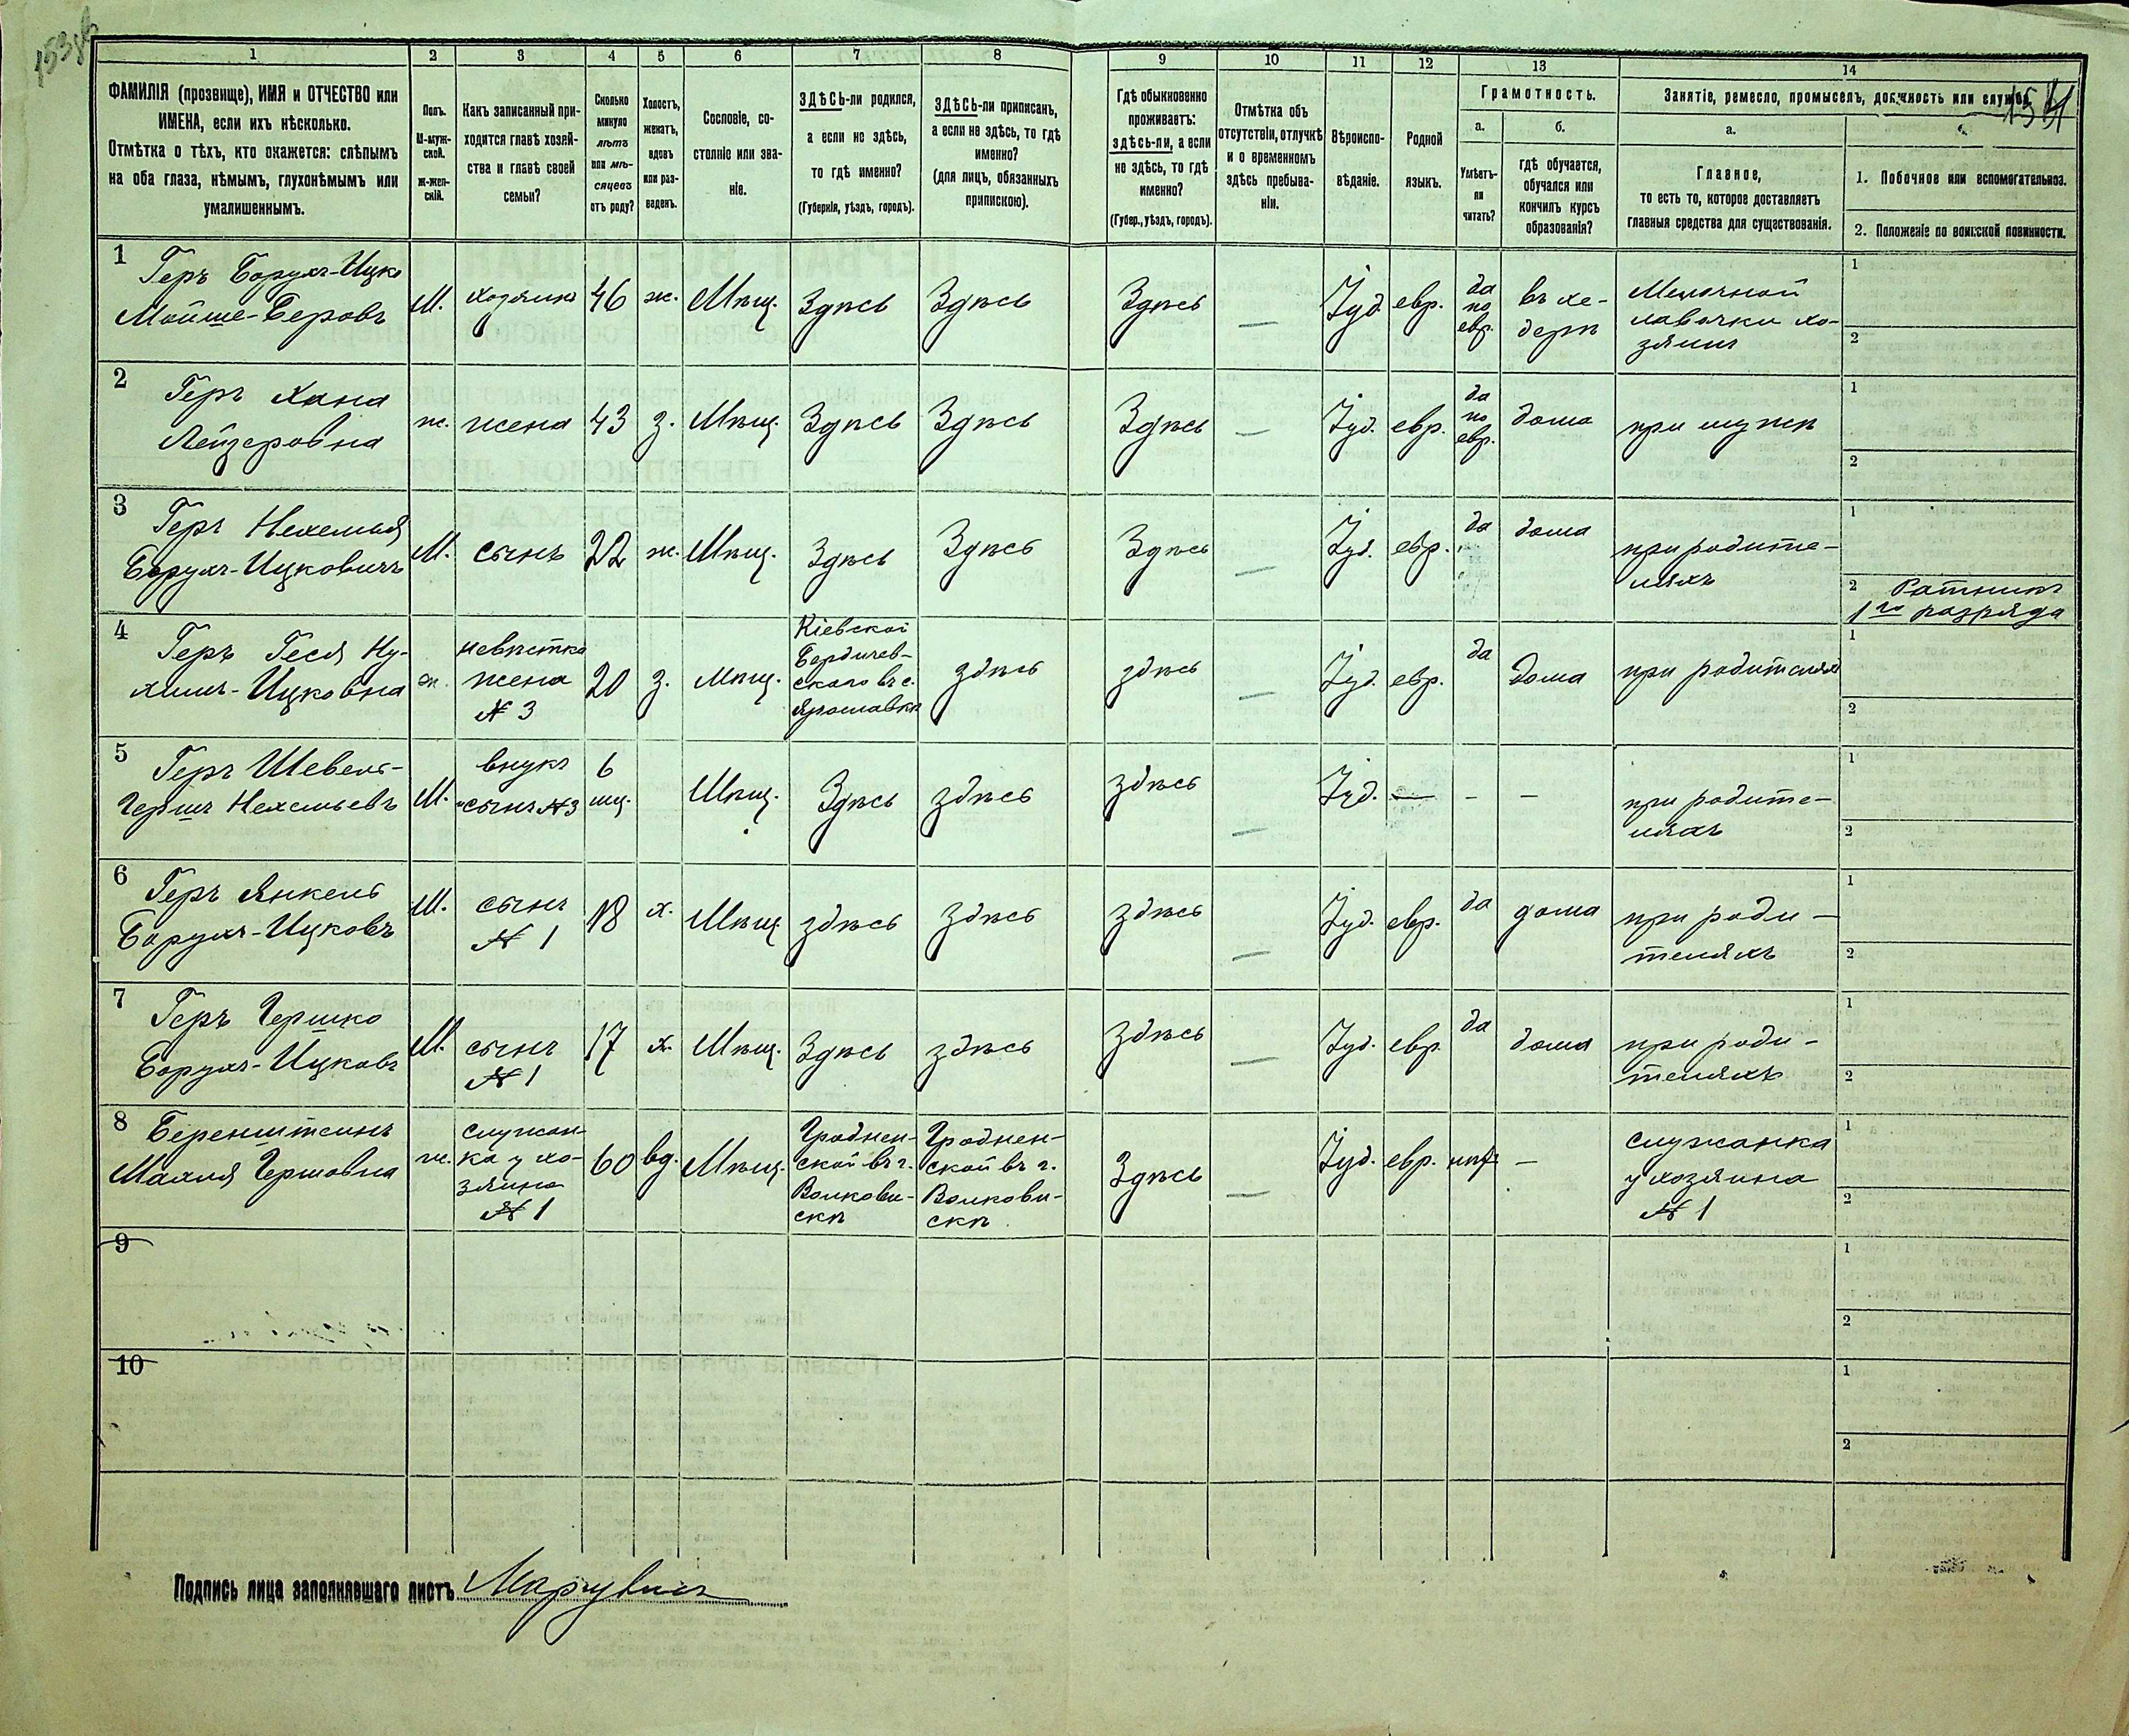 153об
154
1 2 3 4 5 6 7 8 9 10 11 12 13 14
ФАМИЛІЯ (прозвище), ИМЯ и ОТЧЕСТВО или
ИМЕНА, если ихъ нѣсколько.
Отмѣтка о тѣхъ, кто окажется: слѣпымъ
на оба глаза, нѣмымъ, глухонѣмымъ или
умалишеннымъ.
Полъ.
М-муж-
ской.
Ж-жен-
скій.
Какъ записанный при-
ходится главѣ хозяй-
ства и главѣ своей
семьи?
Сколько
минуло
лѣтъ
или мѣ-
сяцевъ
отъ роду?
Холостъ,
женатъ,
вдовъ
или раз-
веденъ.
Сословіе, со-
стояніе или зва-
ніе.
ЗДѢСЬ-ли родился,
а если не здѣсь,
то гдѣ именно?
(Губернія, уѣздъ, городъ).
ЗДѢСЬ-ли приписанъ,
а если не здѣсь, то гдѣ
именно?
(для лицъ, обязанныхъ
припискою).
Гдѣ обыкновенно
проживаетъ:
здѣсь-ли, а если
не здѣсь, то гдѣ
именно?
(Губер., уѣздъ, городъ).
Отмѣтка объ
отсутствіи, отлучкѣ
и о временномъ
здѣсь пребыва-
ніи.
Вѣроиспо-
вѣданіе.
Родной
языкъ.
Грамотность.
а.
Умѣетъ-
ли
читать?
б.
гдѣ обучается,
обучался или
кончилъ курсъ
образованія?
Занятіе, ремесло, промыселъ, должность или служба.
а.
Главное,
то есть то, которое доставляетъ
главныя средства для существованія.
1. Побочное или вспомогательное.
2. Положеніе по воинской повинности.
1
Геръ Борухъ-Ицко
Мойше-Беровъ
М.
хозяинъ
46
ж.
Мѣщ.
Здѣсь
Здѣсь
Здѣсь
—
Іуд.
евр.
да
по
евр.
въ хе-
дерѣ
Мелочной
лавочки хо-
зяинъ
1
2
2
Геръ Хана
Лейзеровна
ж.
жена
43
з.
Мѣщ.
Здѣсь
Здѣсь
Здѣсь
—
Іуд.
евр.
да
по
евр.
дома
при мужѣ
1
2
3
Геръ Нехемья
Борухъ-Ицковичъ
М.
сынъ
22
ж.
Мѣщ.
Здѣсь
Здѣсь
Здѣсь
—
Іуд.
евр.
да
дома
при родите-
ляхъ
1
2 Ратникъ
1го разряда
4
Геръ Геся Ну-
химъ-Ицковна
ж.
невѣстка
жена
№ 3
20
з.
Мѣщ.
Кіевской
Бердичев-
скаго въ с.
Ярославкѣ
здѣсь
здѣсь
—
Іуд.
евр.
да
дома
при родителяхъ
1
2
5
Геръ Шевель-
Гершъ Нехемьевъ
М.
внукъ
сынъ №3
6
мц.
Мѣщ.
Здѣсь
здѣсь
здѣсь
—
Іуд.
—
–
—
при родите-
ляхъ
1
2
6
Геръ Янкель
Борухъ-Ицковъ
М.
сынъ
№ 1
18
х.
Мѣщ.
здѣсь
здѣсь
здѣсь
—
Іуд.
евр.
да
дома
при роди-
теляхъ
1
2
7
Геръ Гершко
Борухъ-Ицковъ
М.
сынъ
№ 1
17
х.
Мѣщ.
Здѣсь
здѣсь
здѣсь
—
Іуд.
евр.
да
дома
при роди-
теляхъ
1
2
8
Беренштейнъ
Малня Гершовна
ж.
служан-
ка у хо-
зяина
№ 1
60
вд.
Мѣщ.
Гроднен-
ской въ г.
Волкови-
скѣ
Гроднен-
ской въ г.
Волкови-
скѣ
Здѣсь
—
Іуд.
евр.
нѣтъ
—
служанка
у хозяина
№ 1
1
2
9
1
2
10
1
2
Подпись лица заполнявшаго листъ